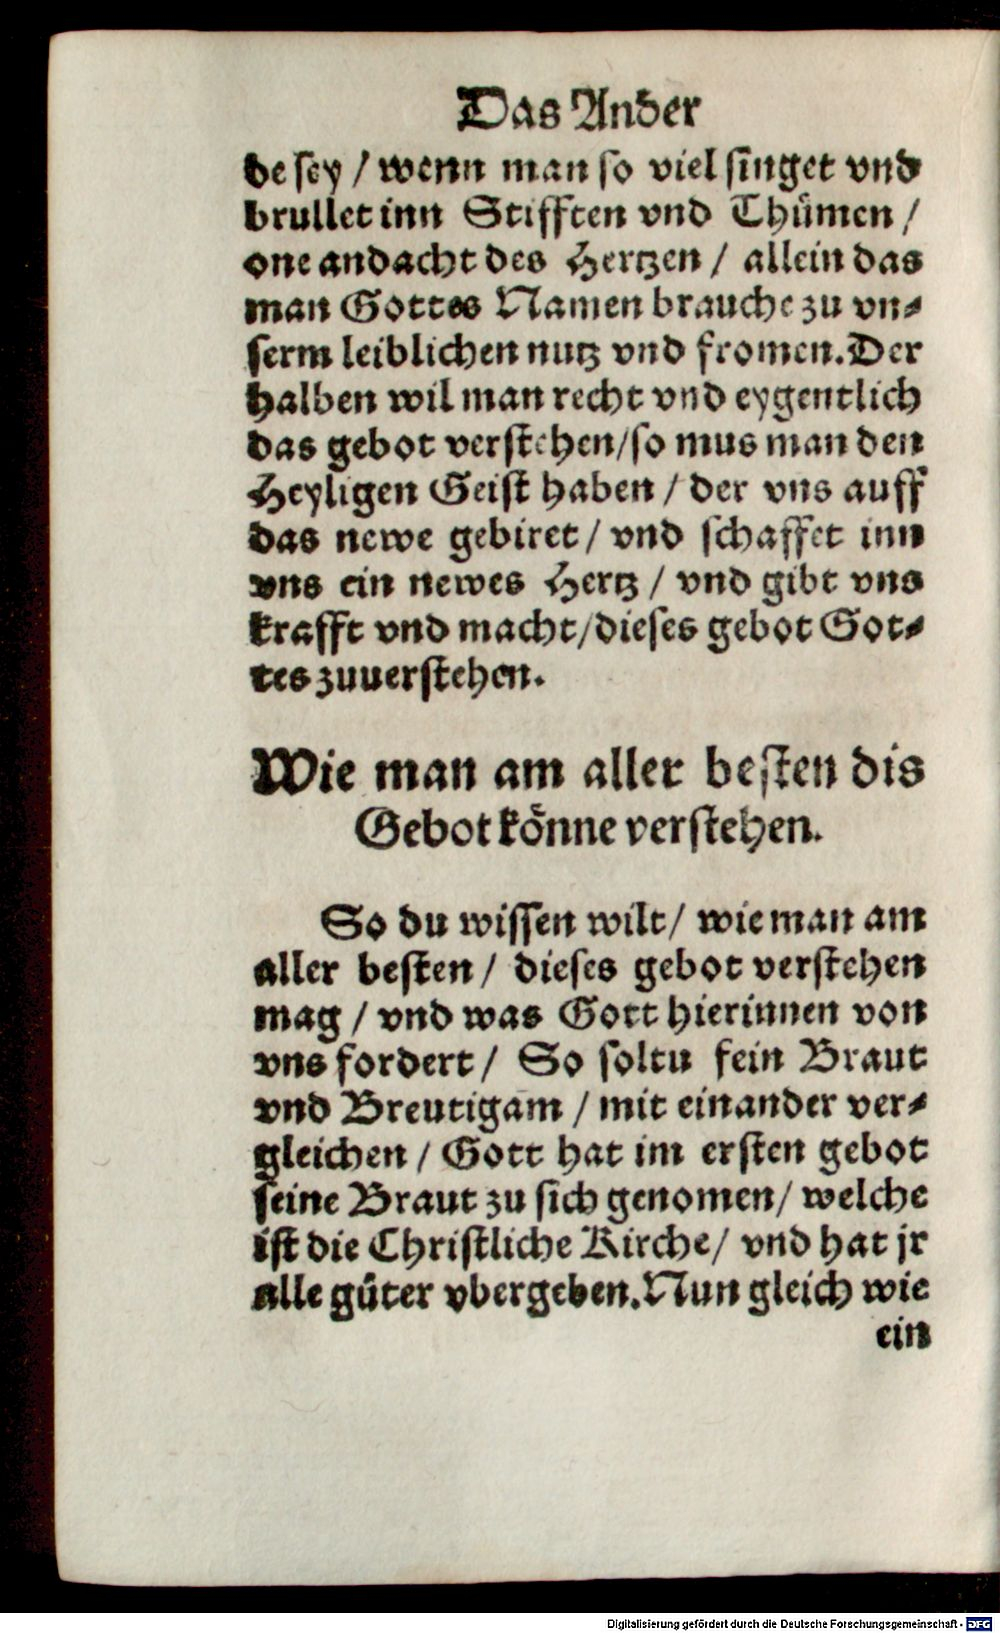 Das Ander
de sey / wenn man so viel singet vnd
brullet inn Stifften vnd Thůmen /
one andacht des Hertzen / allein das
man Gottes Namen brauche zu vn⸗
serm leiblichen nutz vnd fromen. Der
halben wil man recht vnd eygentlich
das gebot verstehen / so mus man den
Heyligen Geist haben / der vns auff
das newe gebiret / vnd schaffet inn
vns ein newes Hertz / vnd gibt vns
krafft vnd macht / dieses gebot Got⸗
tes zuuerstehen.
Wie man am aller besten dis
Gebot könne verstehen.
So du wissen wilt / wie man am
aller besten / dieses gebot verstehen
mag / vnd was Gott hierinnen von
vns fordert / So soltu fein Braut
vnd Breutigam / mit einander ver⸗
gleichen / Gott hat im ersten gebot
seine Braut zu sich genomen / welche
ist die Christliche Kirche / vnd hat jr
alle gůter vbergeben. Nun gleich wie
ein
Digitalisierung gefördert durch die Deutsche Forschungsgemeinschaft - DFG